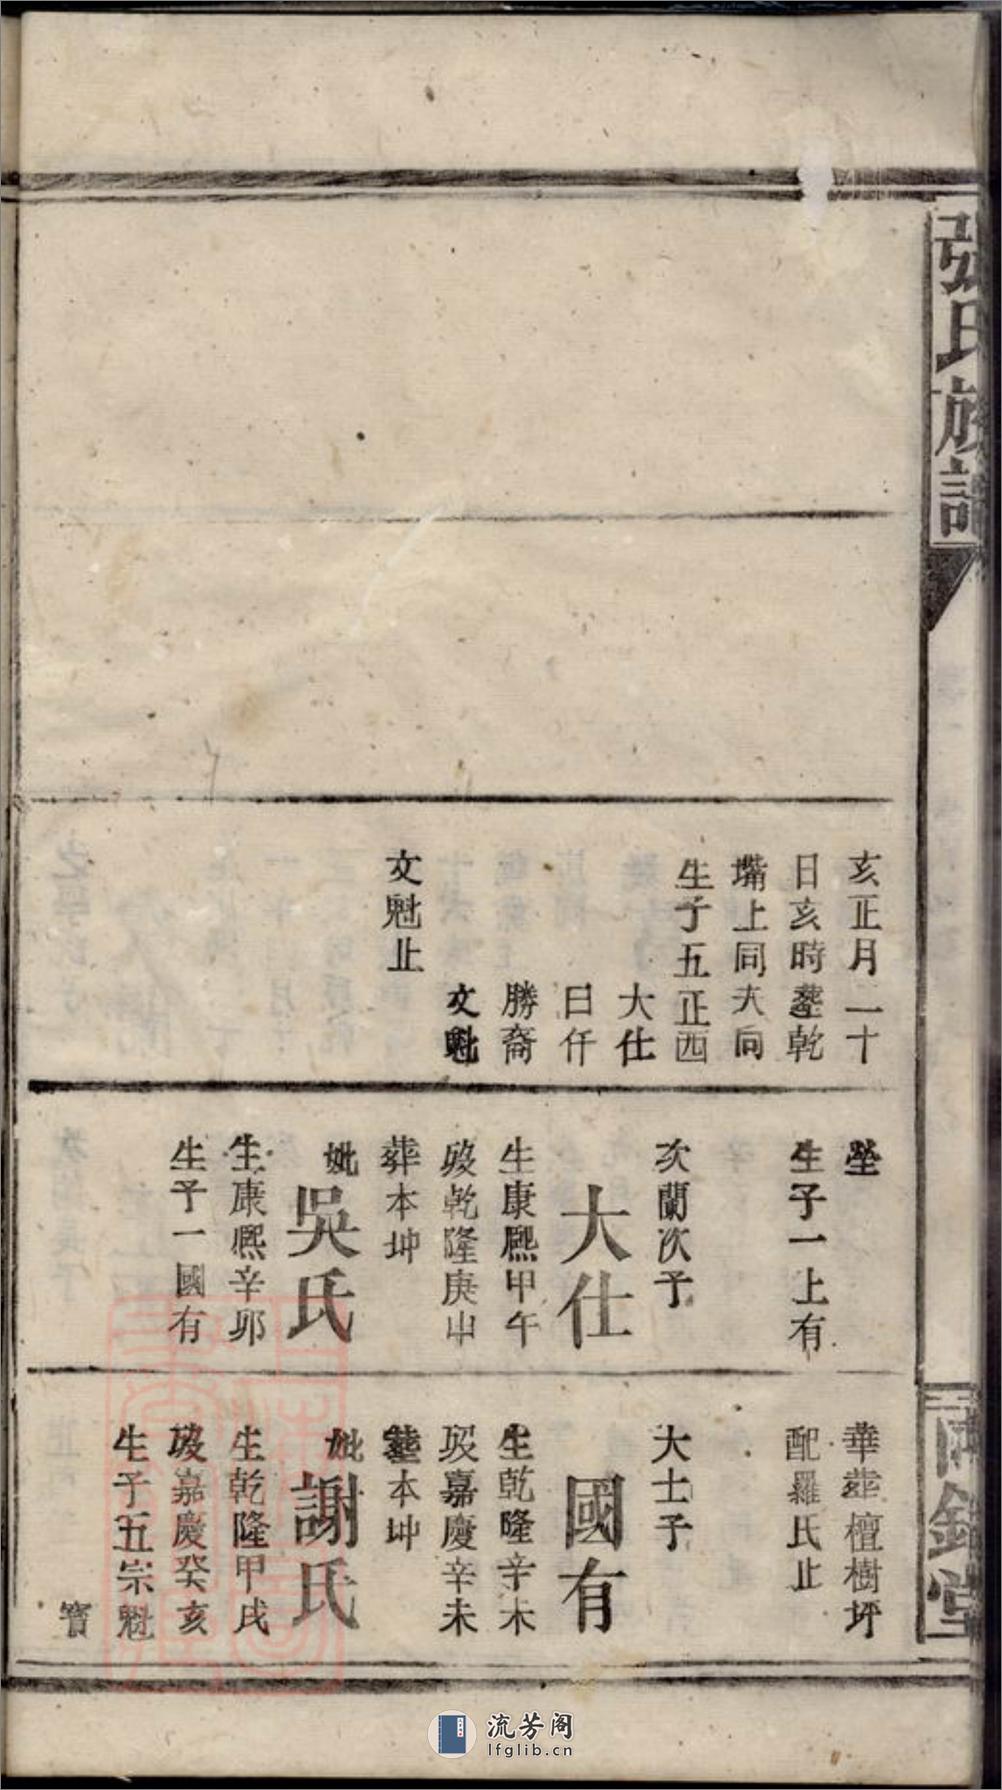 張氏族譜
兩銘堂
亥正月二十
日亥時塟乾
塘上同夫向
生子五正西
大仕
曰仟
勝裔
文魁
文魁止
塋
生子一上有
次蘭次子
大仕
生康熙甲午
歿乾隆庚申
葬本坤
妣吳氏
生康熙辛卯
生子一國有
華塟檀樹坪
配羅氏止
大士子
國有
生乾隆辛未
歿嘉慶辛未
塟本坤
妣謝氏
生乾隆甲戌
歿嘉慶癸亥
生子五宗魁
寶
流芳阁
lfglib.cn